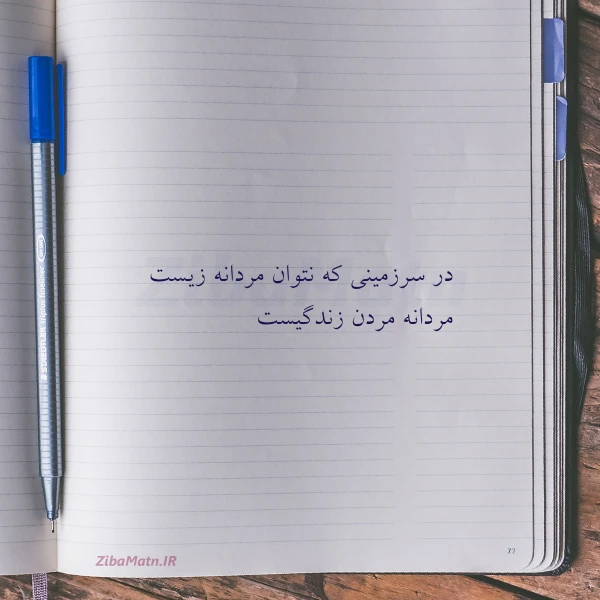 در سرزمینی که نتوان مردانه زیست
مردانه مردن زندگیست
ZibaMatn.IR